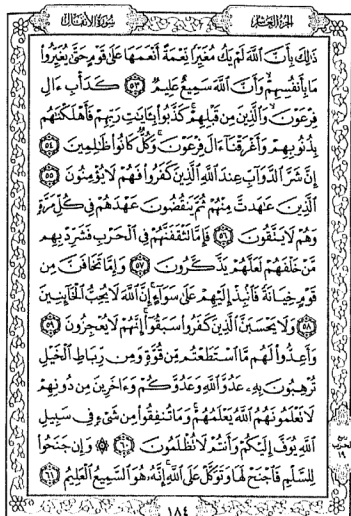 سُورَةُ الأَنفَالِ الجُزءُ العَاشِرُ
ذَٰلِكَ بِأَنَّ ٱللَّهَ لَمْ يَكُ مُغَيِّرًا نِّعْمَةً أَنْعَمَهَا عَلَىٰ قَوْمٍ حَتَّىٰ يُغَيِّرُوا۟
مَا بِأَنفُسِهِمْ وَأَنَّ ٱللَّهَ سَمِيعٌ عَلِيمٌ ٥٣ كَدَأْبِ ءَالِ
فِرْعَوْنَ وَٱلَّذِينَ مِن قَبْلِهِمْ كَذَّبُوا۟ بِـَٔايَٰتِ رَبِّهِمْ فَأَهْلَكْنَٰهُم
بِذُنُوبِهِمْ وَأَغْرَقْنَآ ءَالَ فِرْعَوْنَ وَكُلٌّ كَانُوا۟ ظَٰلِمِينَ ٥٤
إِنَّ شَرَّ ٱلدَّوَآبِّ عِندَ ٱللَّهِ ٱلَّذِينَ كَفَرُوا۟ فَهُمْ لَا يُؤْمِنُونَ ٥٥
ٱلَّذِينَ عَٰهَدتَّ مِنْهُمْ ثُمَّ يَنقُضُونَ عَهْدَهُمْ فِى كُلِّ مَرَّةٍ
وَهُمْ لَا يَتَّقُونَ ٥٦ فَإِمَّا تَثْقَفَنَّهُمْ فِى ٱلْحَرْبِ فَشَرِّدْ بِهِم
مَّنْ خَلْفَهُمْ لَعَلَّهُمْ يَذَّكَّرُونَ ٥٧ وَإِمَّا تَخَافَنَّ مِن
قَوْمٍ خِيَانَةً فَٱنۢبِذْ إِلَيْهِمْ عَلَىٰ سَوَآءٍ إِنَّ ٱللَّهَ لَا يُحِبُّ ٱلْخَآئِنِينَ
٥٨ وَلَا يَحْسَبَنَّ ٱلَّذِينَ كَفَرُوا۟ سَبَقُوٓا۟ إِنَّهُمْ لَا يُعْجِزُونَ ٥٩
وَأَعِدُّوا۟ لَهُم مَّا ٱسْتَطَعْتُم مِّن قُوَّةٍ وَمِن رِّبَاطِ ٱلْخَيْلِ
تُرْهِبُونَ بِهِۦ عَدُوَّ ٱللَّهِ وَعَدُوَّكُمْ وَءَاخَرِينَ مِن دُونِهِمْ
لَا تَعْلَمُونَهُمُ ٱللَّهُ يَعْلَمُهُمْ وَمَا تُنفِقُوا۟ مِن شَىْءٍ فِى سَبِيلِ
ٱللَّهِ يُوَفَّ إِلَيْكُمْ وَأَنتُمْ لَا تُظْلَمُونَ ٦٠ وَإِن جَنَحُوا۟
لِلسَّلْمِ فَٱجْنَحْ لَهَا وَتَوَكَّلْ عَلَى ٱللَّهِ إِنَّهُۥ هُوَ ٱلسَّمِيعُ ٱلْعَلِيمُ ٦١
١٩
١٨٤